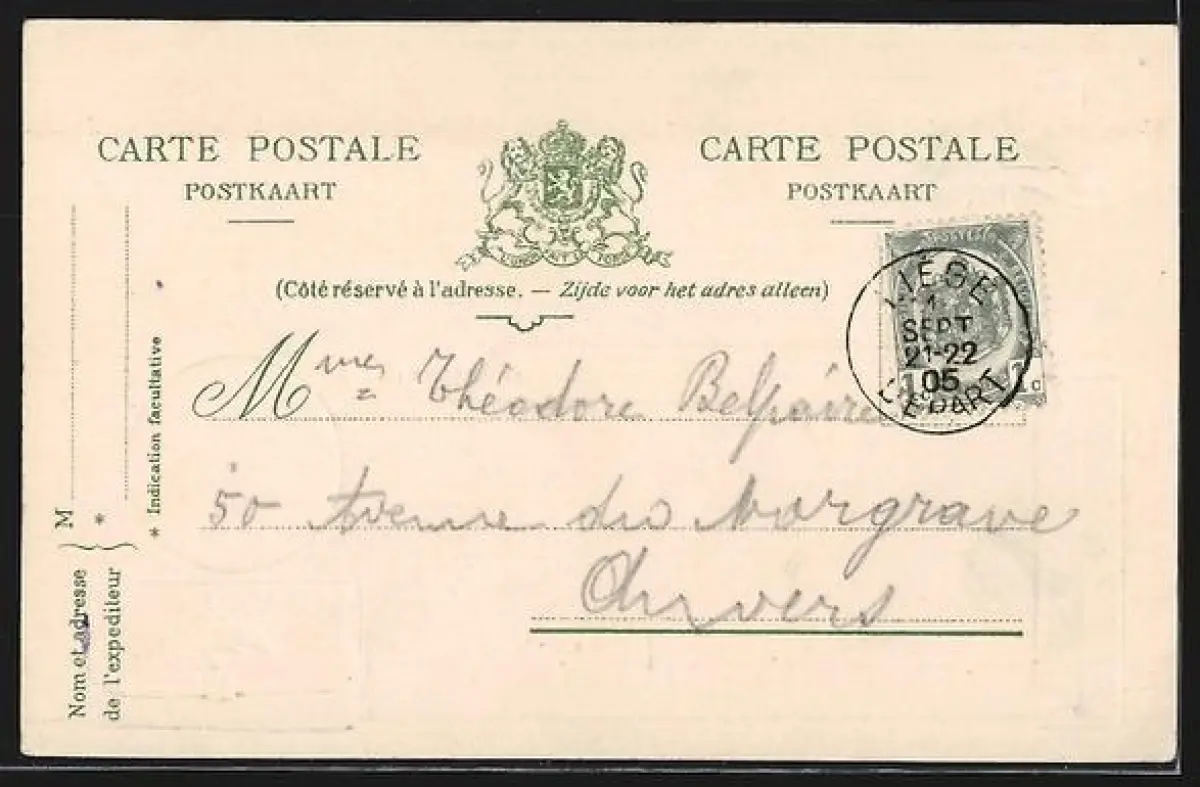 CARTE POSTALE
POSTKAART
CARTE POSTALE
POSTKAART
L'UNION FAIT LA FORCE
(Côté réservé à l'adresse. — Zijde voor het adres alleen)
LIÉGE
1
SEPT
21-22
05
DÉPART
Mmes Théodore Belpaire
50 Avenue du Margrave
Anvers
Nom et adresse
de l'expediteur
M
*
* Indication facultative